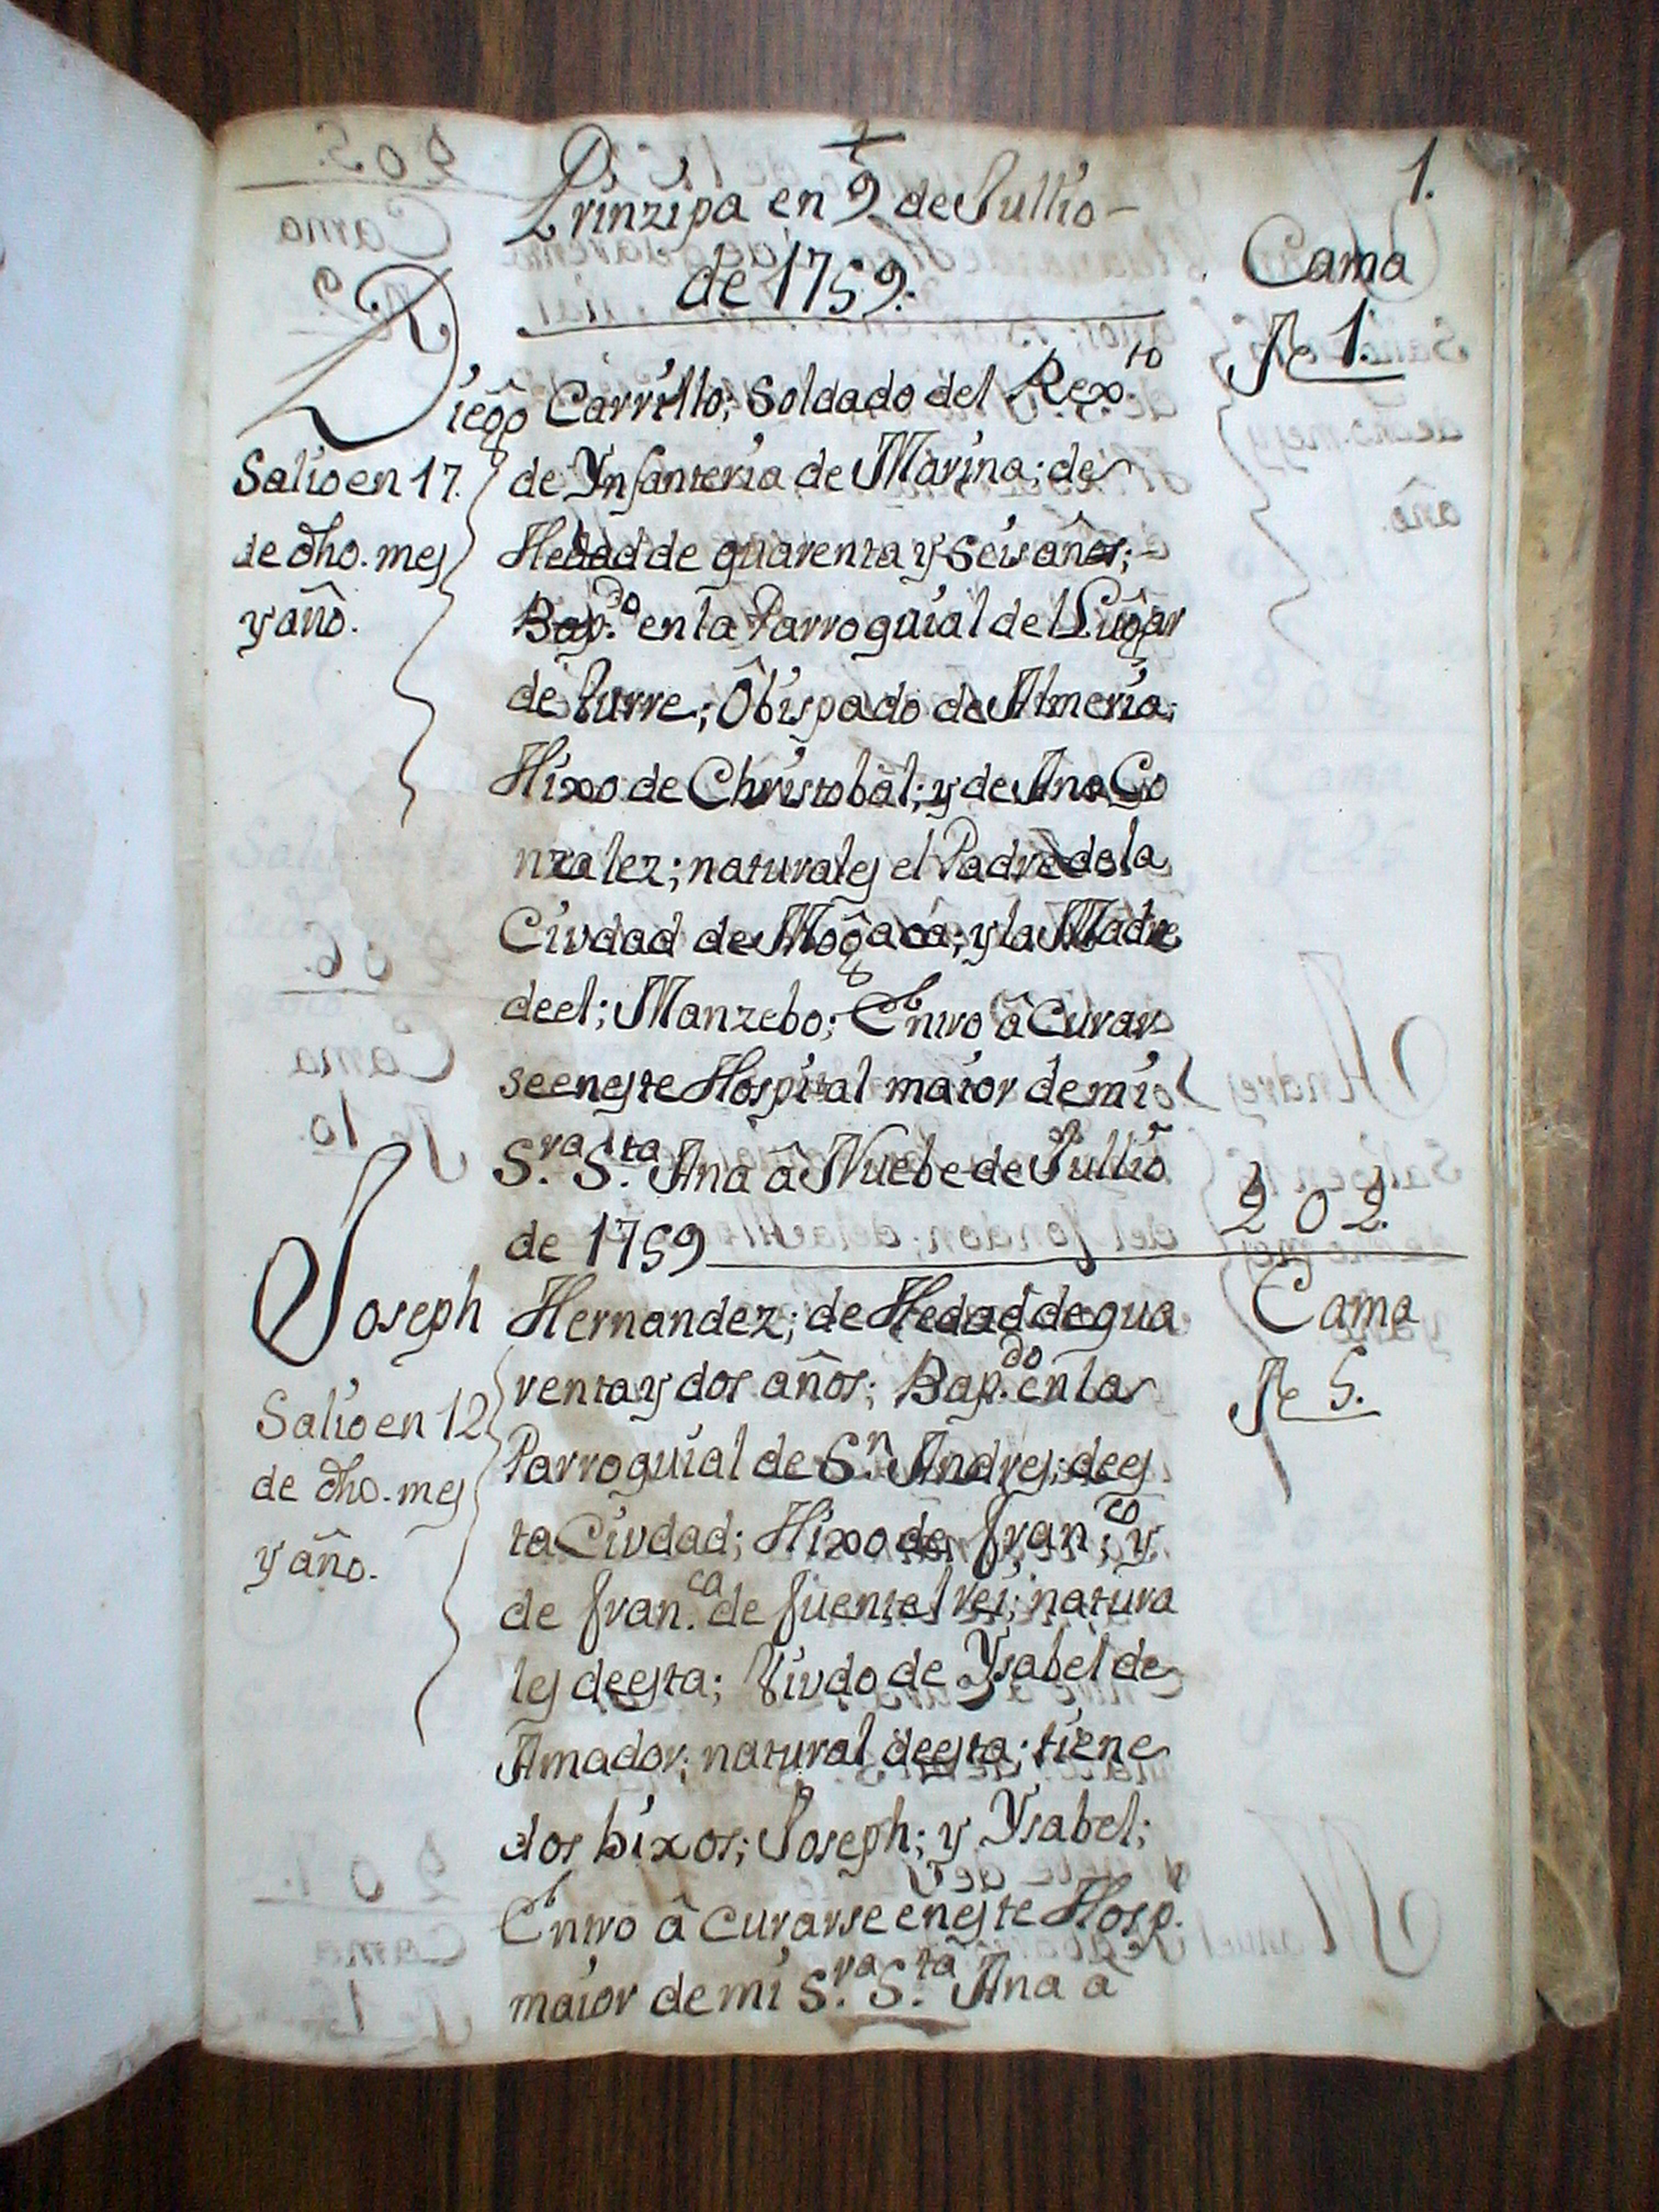 1.
Prinzipa en 9 de Jullio
de 1759.
Cama
Ne 1.
Diego Carrillo; Soldado del Rex.to
de Ynfanteria de Marina; de
Hedad de quarenta y seis años;
Bap.do en la Parroquial del Lugar
de Turre; Obispado de Almeria;
Hixo de Christobal; y de Ana Go
nzalez; naturales el Padre de la
Ciudad de Mogaca; y la Madre
de el; Manzebo; Entro â Curar
se en este Hospital maior de mi
S.ra S.ta Ana â Nuebe de Jullio
de 1759
Salio en 17.
de dho. mes
y año.
202.
Cama
Ne 5.
Joseph Hernandez; de Hedad de qua
renta y dos años; Bap.do en la
Parroquial de S.n Andres; de es
ta Ciudad; Hixo de Fran.co y
de Fran.ca de Fuentel Rei; natura
les de esta; Viudo de Ysabel de
Amador; natural de esta; tiene
dos hixos; Joseph; y Ysabel;
Entro â curarse en este Hosp.
maior de mi S.ra S.ta Ana â
Salio en 12
de dho. mes
y año.